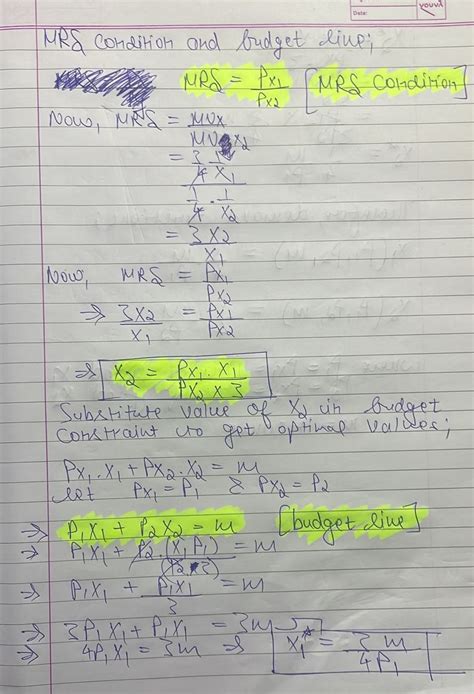 Date:
YOUVA
MRS Condition and budget line;
MRS = Px1/Px2 [MRS Condition]
Now, MRS = MUx/MUx2
= 3/4 · 1/X1
1/4 · 1/X2
= 3X2/X1
Now, MRS = Px1/Px2
⇒ 3X2/X1 = Px1/Px2
⇒ X2 = Px1 · X1/PX2 x 3
Substitute value of X2 in budget
constraint to get optimal values;
Px1 · X1 + Px2 · X2 = m
let Px1 = P1 & Px2 = P2
⇒ P1X1 + P2X2 = m [budget line]
⇒ P1X1 + P2 · (X1P1)/(P2 x 3) = m
⇒ P1X1 + P1X1/3 = m
⇒ 3P1X1 + P1X1 = 3m
⇒ 4P1X1 = 3m ⇒ X1* = 3m/4P1